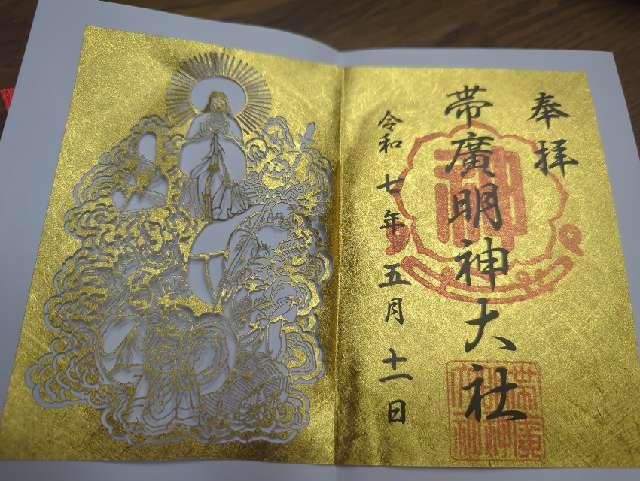 奉拝
帯廣明神大社
令和七年五月十一日